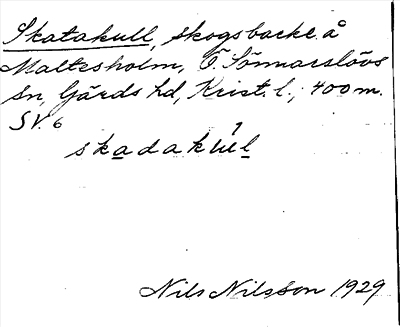 Skatakull, skogsbacke å
Maltesholm, Ö. Sönnarslövs
sn, Gärds hd, Krist. l., 400 m.
SV. 6
skadakul
Nils Nilsson 1929